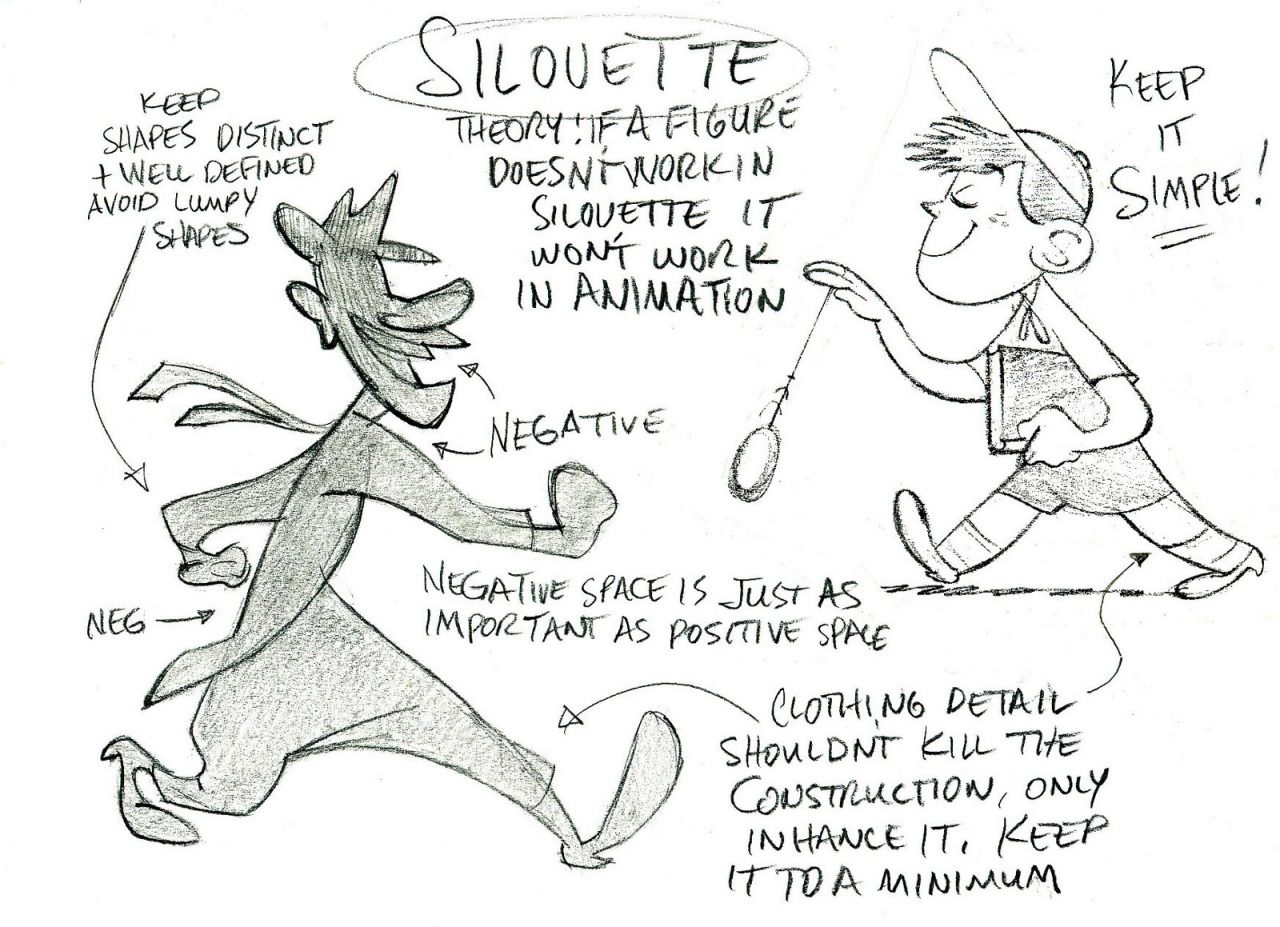 SILOUETTE
THEORY! IF A FIGURE
DOESN'T WORK IN
SILOUETTE IT
WON'T WORK
IN ANIMATION
KEEP
SHAPES DISTINCT
+ WELL DEFINED
AVOID LUMPY
SHAPES
KEEP
IT
SIMPLE!
NEGATIVE
NEG
NEGATIVE SPACE IS JUST AS
IMPORTANT AS POSITIVE SPACE
CLOTHING DETAIL
SHOULDN'T KILL THE
CONSTRUCTION, ONLY
INHANCE IT. KEEP
IT TO A MINIMUM